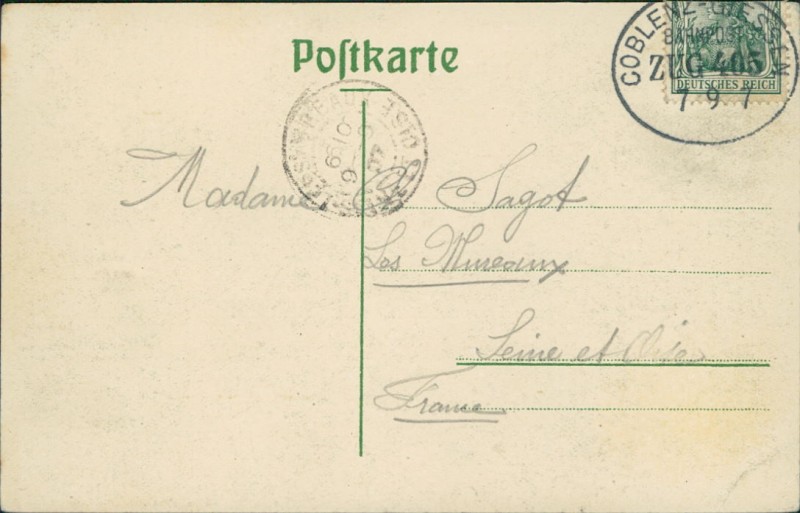 Postkarte
COBLENZ-GIESSEN
BAHNPOST
ZUG 405
7 9 7
DEUTSCHES REICH
Madame Sagot
Les Mureaux
Seine et Oise
France